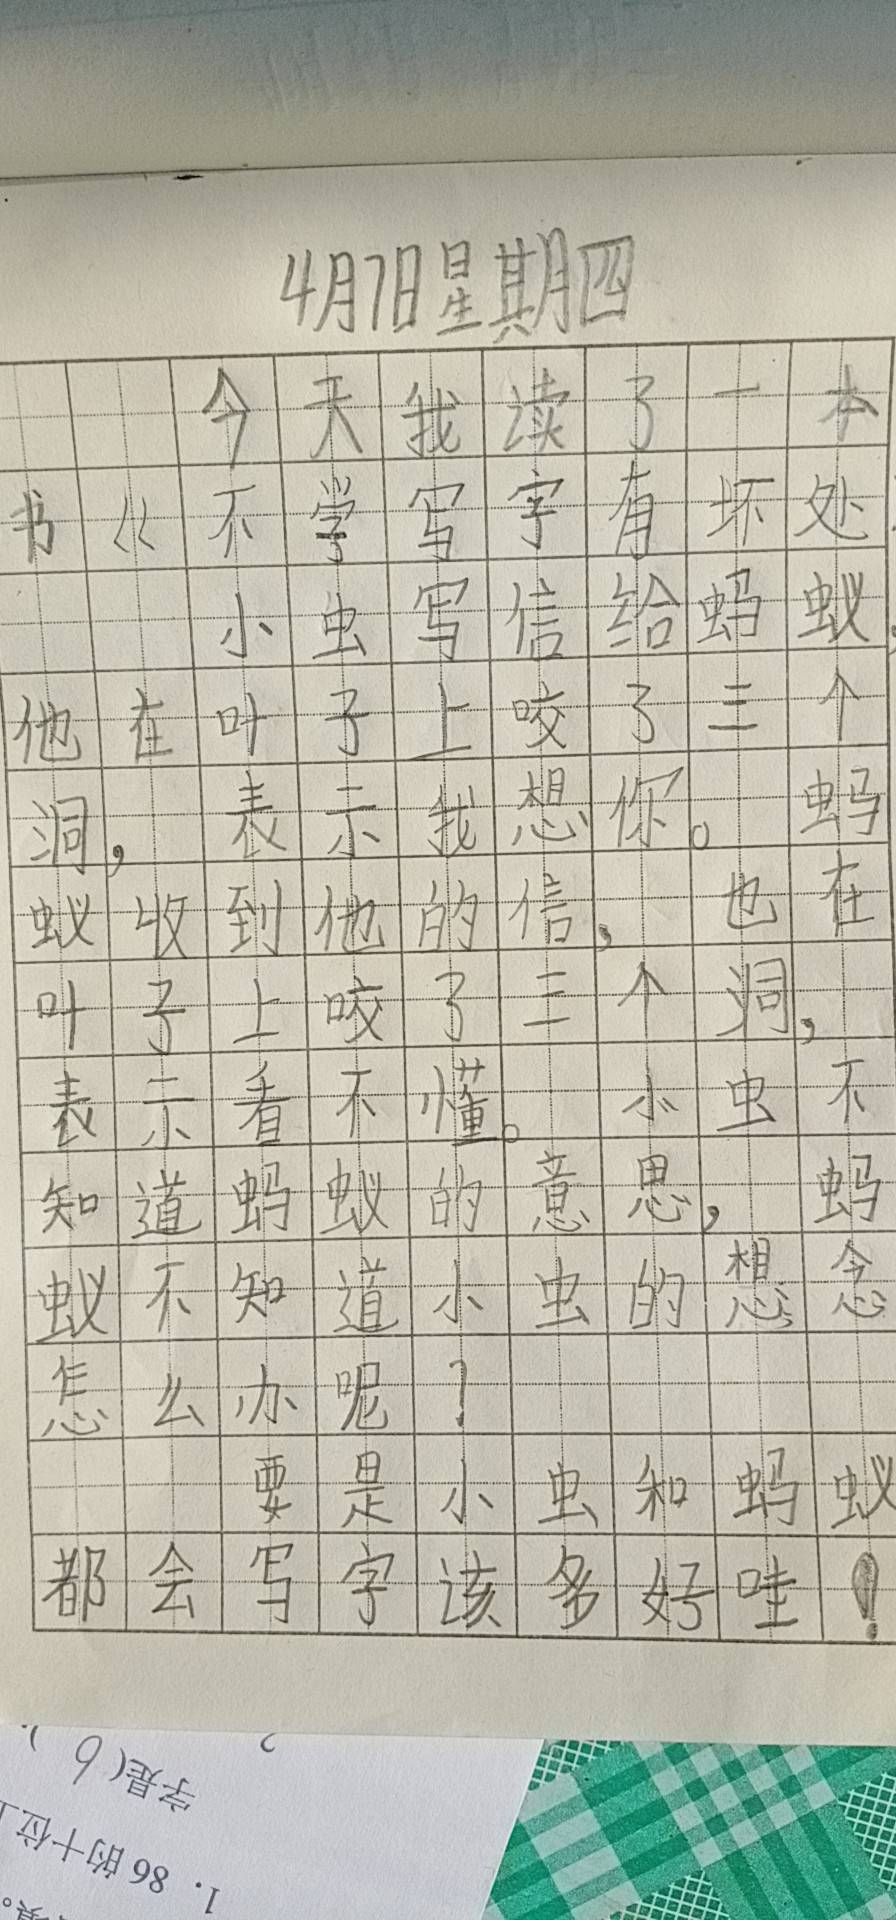 4月7日星期四
今天我读了一本
书《不学写字有坏处
小虫写信给蚂蚁,
他在叶子上咬了三个
洞,表示我想你。蚂
蚁收到他的信,也在
叶子上咬了三个洞,
表示看不懂。小虫不
知道蚂蚁的意思,蚂
蚁不知道小虫的想念
怎么办呢?
要是小虫和蚂蚁
都会写字该多好哇!
字是(6)
1. 86的十位上